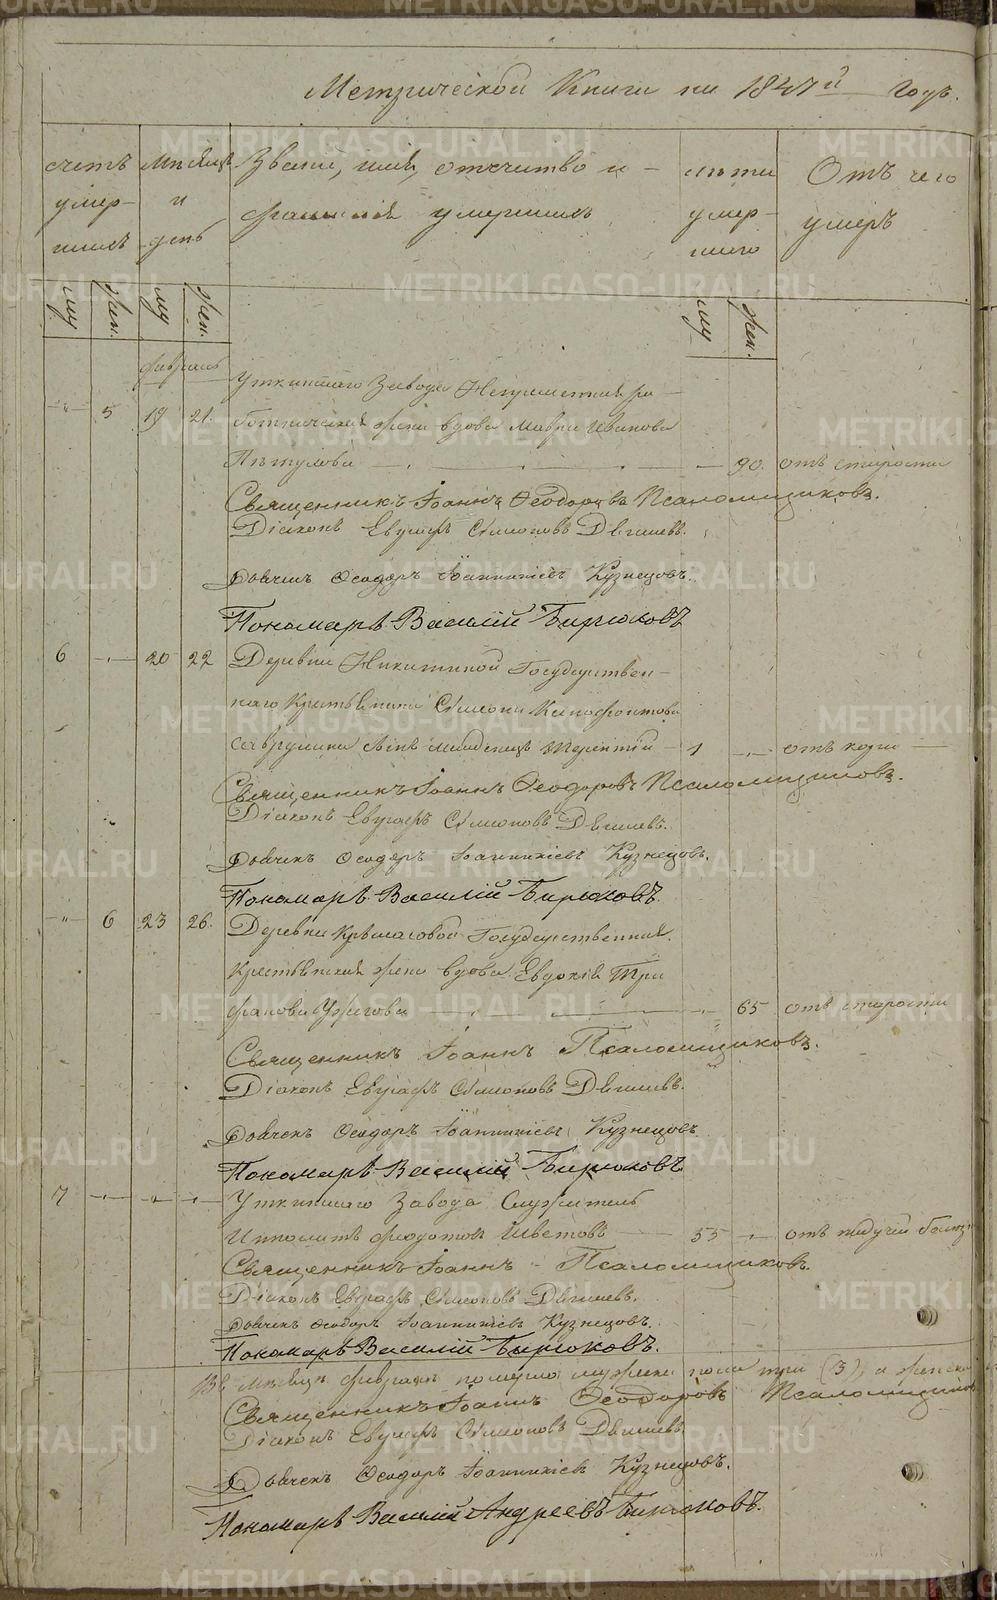 Метрической Книги на 1847й Годъ.
счетъ умер-шихъ
Мѣсяцъ и день
Званiе, имя, отечество и фамилiя умершихъ
лѣта умер-шаго
Отъ чего умеръ
му жен. му жен. му жен.
Февраль
Уткинскаго Завода Непремѣннаго ра-
5 19 21. ботническая жена вдова Мавра Иванова
90. отъ старости
Священникъ Iоаннъ Ѳеодоровъ Псаломщиковъ.
Дiаконъ Евграфъ Сѵмеоновъ
Дьячекъ Ѳеодоръ Iоанникiевъ Кузнецовъ.
Пономарь Василiй Бирюковъ
6 20 22 Деревни Никитиной Государствен-
наго Крестьянина Сѵмеона
сынъ младенецъ Терентiй 1 отъ кори
Священникъ Iоаннъ Ѳеодоровъ Псаломщиковъ.
Дiаконъ Евграфъ Сѵмеоновъ
Дьячекъ Ѳеодоръ Iоанникiевъ Кузнецовъ.
Пономарь Василiй Бирюковъ.
6 23 26. Деревни Государственная
Крестьянская жена вдова Евдокiя Три
фанова 65 отъ старости
Священникъ Iоаннъ Псаломщиковъ.
Дiаконъ Евграфъ Сѵмеоновъ
Дьячекъ Ѳеодоръ Iоанникiевъ Кузнецовъ
Пономарь Василiй Бирюковъ
7 Уткинскаго Завода Служитель
Ипполитъ 55 отъ падучей болѣз
Священникъ Iоаннъ Псаломщиковъ.
Дiаконъ Евграфъ Сѵмеоновъ
Дьячекъ Ѳеодоръ Iоанникiевъ Кузнецовъ.
Пономарь Василiй Бирюковъ.
Въ Мѣсяцѣ Февралѣ померло мужеска пола три (3), а женска
Священникъ Iоаннъ Ѳеодоровъ Псаломщиковъ
Дiаконъ Евграфъ Сѵмеоновъ
Дьячекъ Ѳеодоръ Iоанникiевъ Кузнецовъ.
Пономарь Василiй Андреевъ Бирюковъ.
METRIKI.GASO-URAL.RU